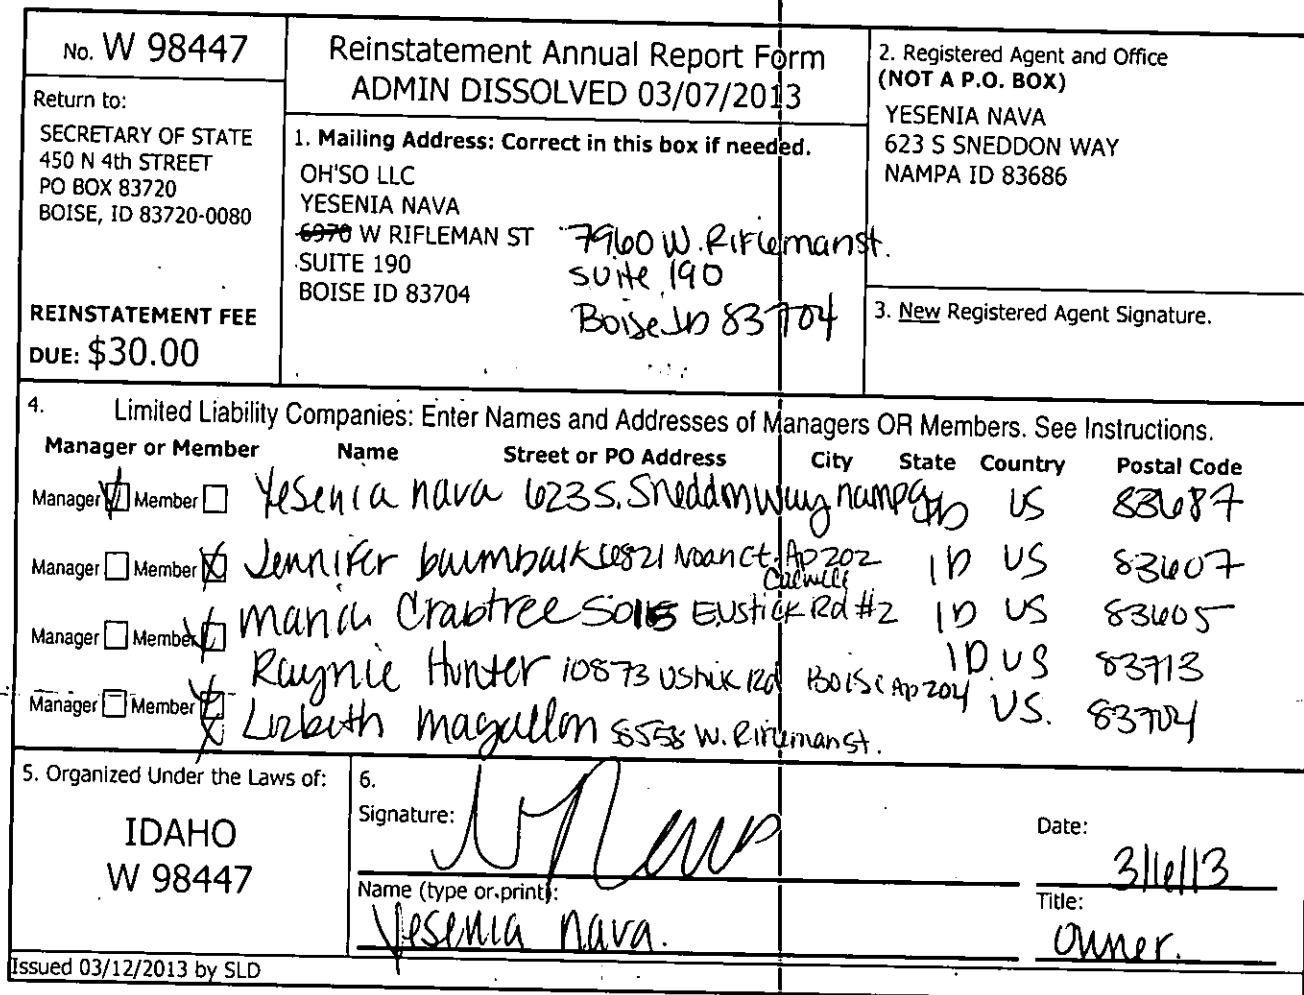 No. W 98447
Return to:
SECRETARY OF STATE
450 N 4th STREET
PO BOX 83720
BOISE, ID 83720-0080
REINSTATEMENT FEE
DUE: $30.00
Reinstatement Annual Report Form
ADMIN DISSOLVED 03/07/2013
1. Mailing Address: Correct in this box if needed.
OH'SO LLC
YESENIA NAVA
6970 W RIFLEMAN ST
SUITE 190
BOISE ID 83704
7960 W. Rifleman st.
suite 190
Boise ID 83704
2. Registered Agent and Office
(NOT A P.O. BOX)
YESENIA NAVA
623 S SNEDDON WAY
NAMPA ID 83686
3. New Registered Agent Signature.
4. Limited Liability Companies: Enter Names and Addresses of Managers OR Members. See Instructions.
Manager or Member Name Street or PO Address City State Country Postal Code
Manager Member Yesenia nava 623 S. Sneddon Way nampa ID US 83687
Manager Member Jennifer 6821 Ct. Ap 202 ID US 83607
Manager Member Crabtree E Ustick Rd #2 ID US 83605
Raynie Hunter 10873 Ustick Rd Boise Ap 204 ID US 83713
Manager Member Lizbeth magallon 8558 W. Rifleman st. US. 83704
5. Organized Under the Laws of:
IDAHO
W 98447
6.
Signature:
Name (type or print):
Yesenia nava.
Date:
3/16/13
Title:
owner.
Issued 03/12/2013 by SLD